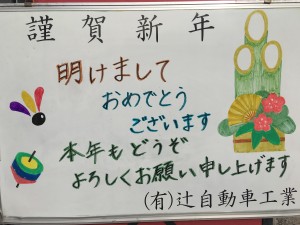 謹賀新年
明けまして
おめでとう
ございます
本年もどうぞ
よろしくお願い申し上げます
(有)辻自動車工業